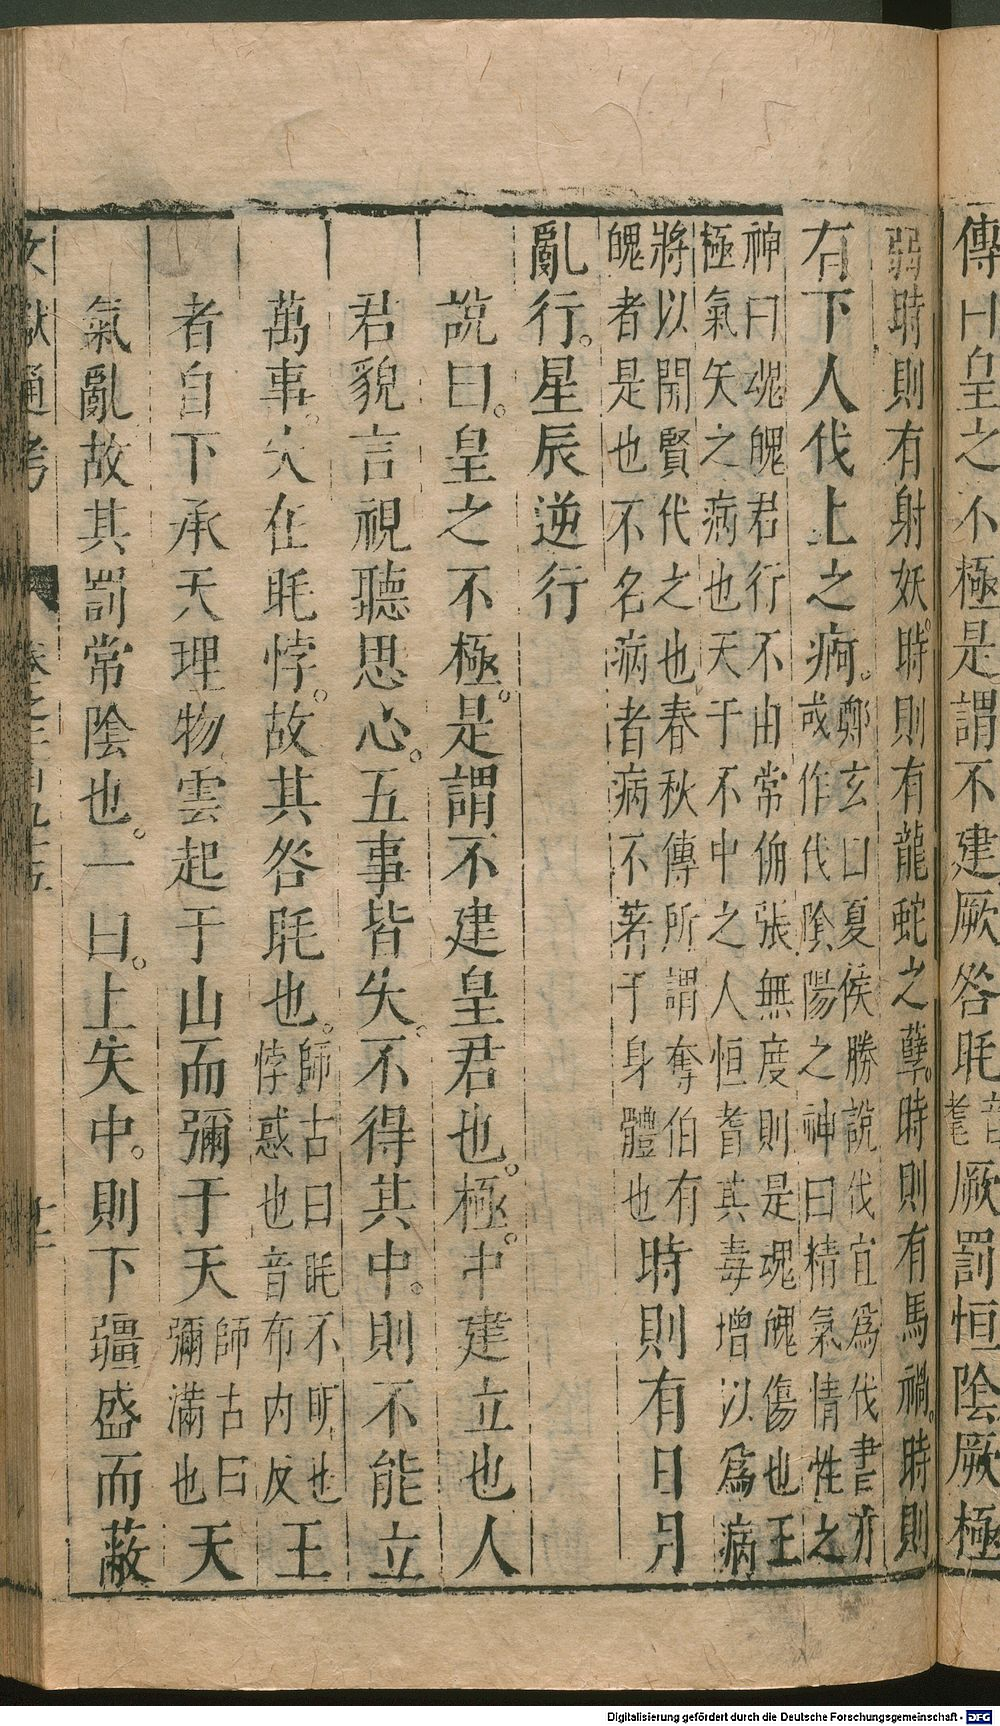 傳曰皇之不極是謂不建厥咎眊音耄厥罰恒陰厥極
弱時則有射妖。時則有龍蛇之孽。時則有馬禍。時則
有下人伐上之痾。鄭玄曰夏侯勝說伐宜為代書亦
或作代陰陽之神曰精氣情性之
神曰魂魄君行不由常侜張無度則是魂魄傷也王
極氣失之病也天于不中之人恒耆其毒增以為病
將以開賢代之也春秋傳所謂奪伯有
魄者是也不名病者病不著于身體也時則有日月
亂行。星辰逆行
說曰。皇之不極。是謂不建皇君也。極。中建立也人
君貌言視聽思心。五事皆失。不得其中。則不能立
萬事。失在眊悖。故其咎眊也。師古曰眊不明也
悖惑也音布內反王
者自下承天理物雲起于山而彌于天師古曰
彌滿也天
氣亂故其罰常陰也。一曰。上失中。則下彊盛而蔽
文獻通考 卷之二百九十五 十二
Digitalisierung gefördert durch die Deutsche Forschungsgemeinschaft - DFG